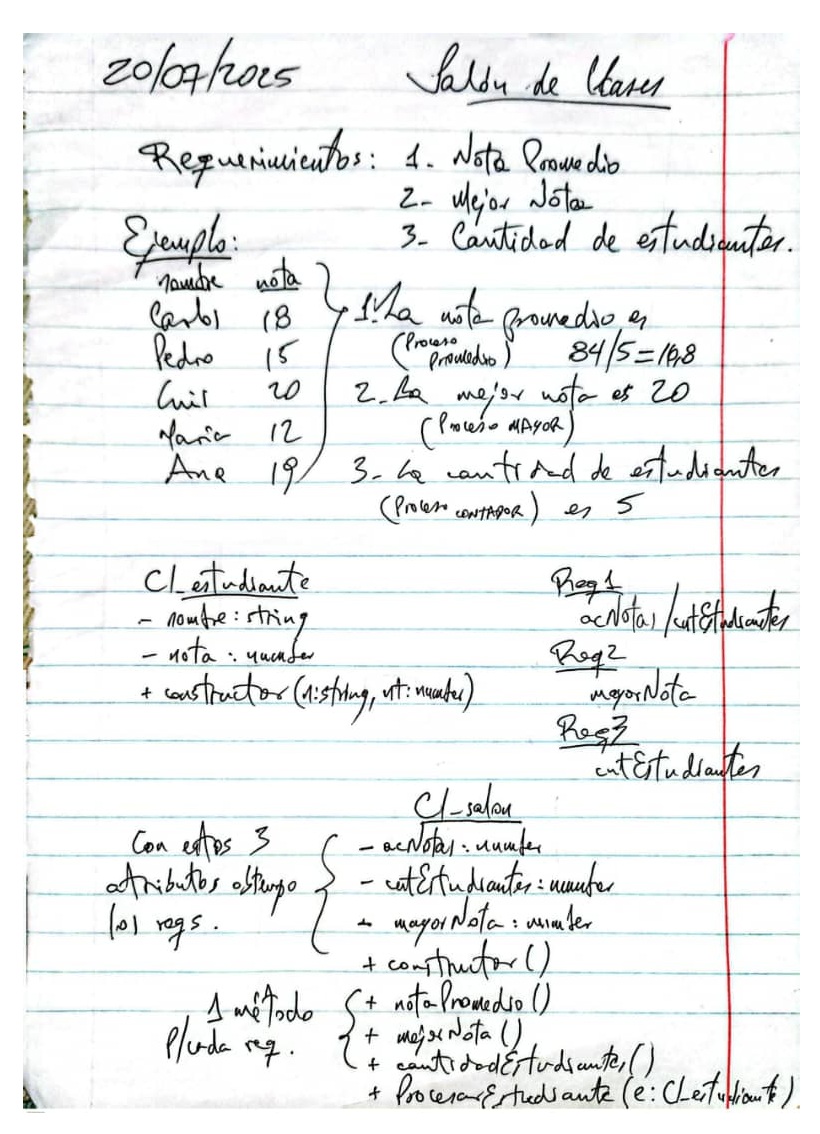 20/07/2025 Salón de Clases
Requerimientos: 1. Nota Promedio
2- Mejor Nota
3- Cantidad de estudiantes.
Ejemplo:
nombre nota
Carlos 18
Pedro 15
Luis 20
Maria 12
Ana 19
1. La nota promedio es
(Proceso Promedio) 84/5=16,8
2. La mejor nota es 20
(Proceso MAYOR)
3- La cantidad de estudiantes
(Proceso CONTADOR) es 5
Cl_estudiante
- nombre: string
- nota: number
+ constructor (n:string, nt:number)
Req1
acNotas/cntEstudiantes
Req2
mayorNota
Req3
cntEstudiantes
Con estos 3
atributos obtengo
los reqs.
Cl_salon
- acNotas: number
- cntEstudiantes: number
- mayorNota: number
+ constructor ()
1 método
p/cada req.
+ notaPromedio ()
+ mejorNota ()
+ cantidadEstudiantes ()
+ ProcesarEstudiante (e: Cl_estudiante)